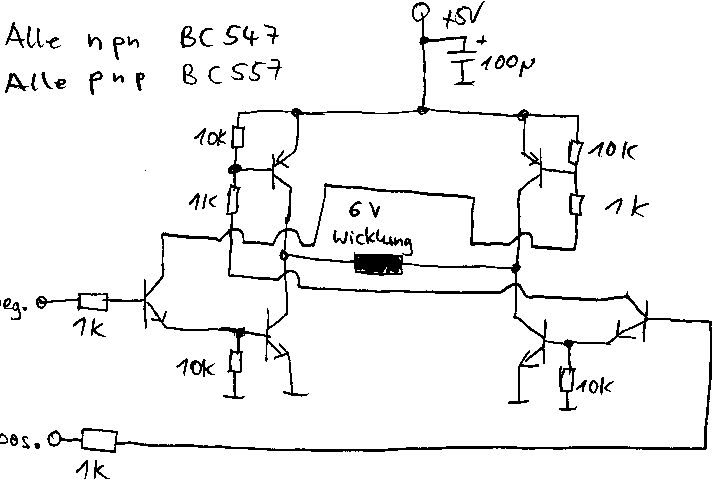 +5V
Alle npn BC547
+
100µ
Alle pnp BC557
10k
10K
1K
1K
6V
Wicklung
neg.
1K
10k
10k
pos.
1K